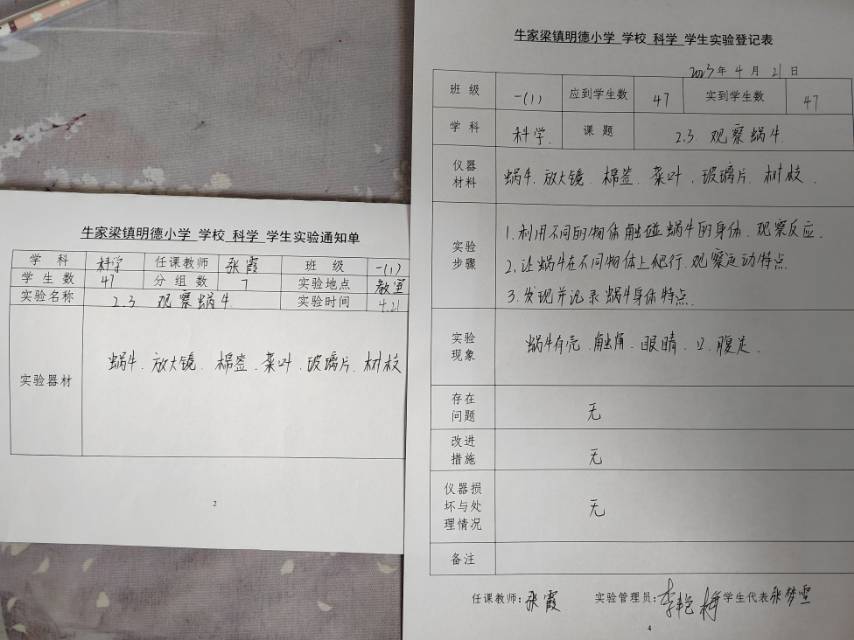 牛家梁镇明德小学 学校 科学 学生实验通知单
学 科 科学 任课教师 张霞 班 级 一(1)
学 生 数 47 分 组 数 7 实验地点 教室
实验名称 2.3 观察蜗牛 实验时间 4.21
实验器材 蜗牛、放大镜、棉签、菜叶、玻璃片、树枝
2
牛家梁镇明德小学 学校 科学 学生实验登记表
2023年 4 月 21 日
班 级 一(1) 应到学生数 47 实到学生数 47
学 科 科学 课 题 2.3 观察蜗牛
仪器材料 蜗牛、放大镜、棉签、菜叶、玻璃片、树枝、
实验步骤 1.利用不同的物体触碰蜗牛的身体,观察反应.
2.让蜗牛在不同物体上爬行,观察运动特点
3.发现并记录蜗牛身体特点.
实验现象 蜗牛有壳、触角、眼睛、口、腹足.
存在问题 无
改进措施 无
仪器损坏与处理情况 无
备注
任课教师:张霞 实验管理员:李艳梅 学生代表 张梦雪
4